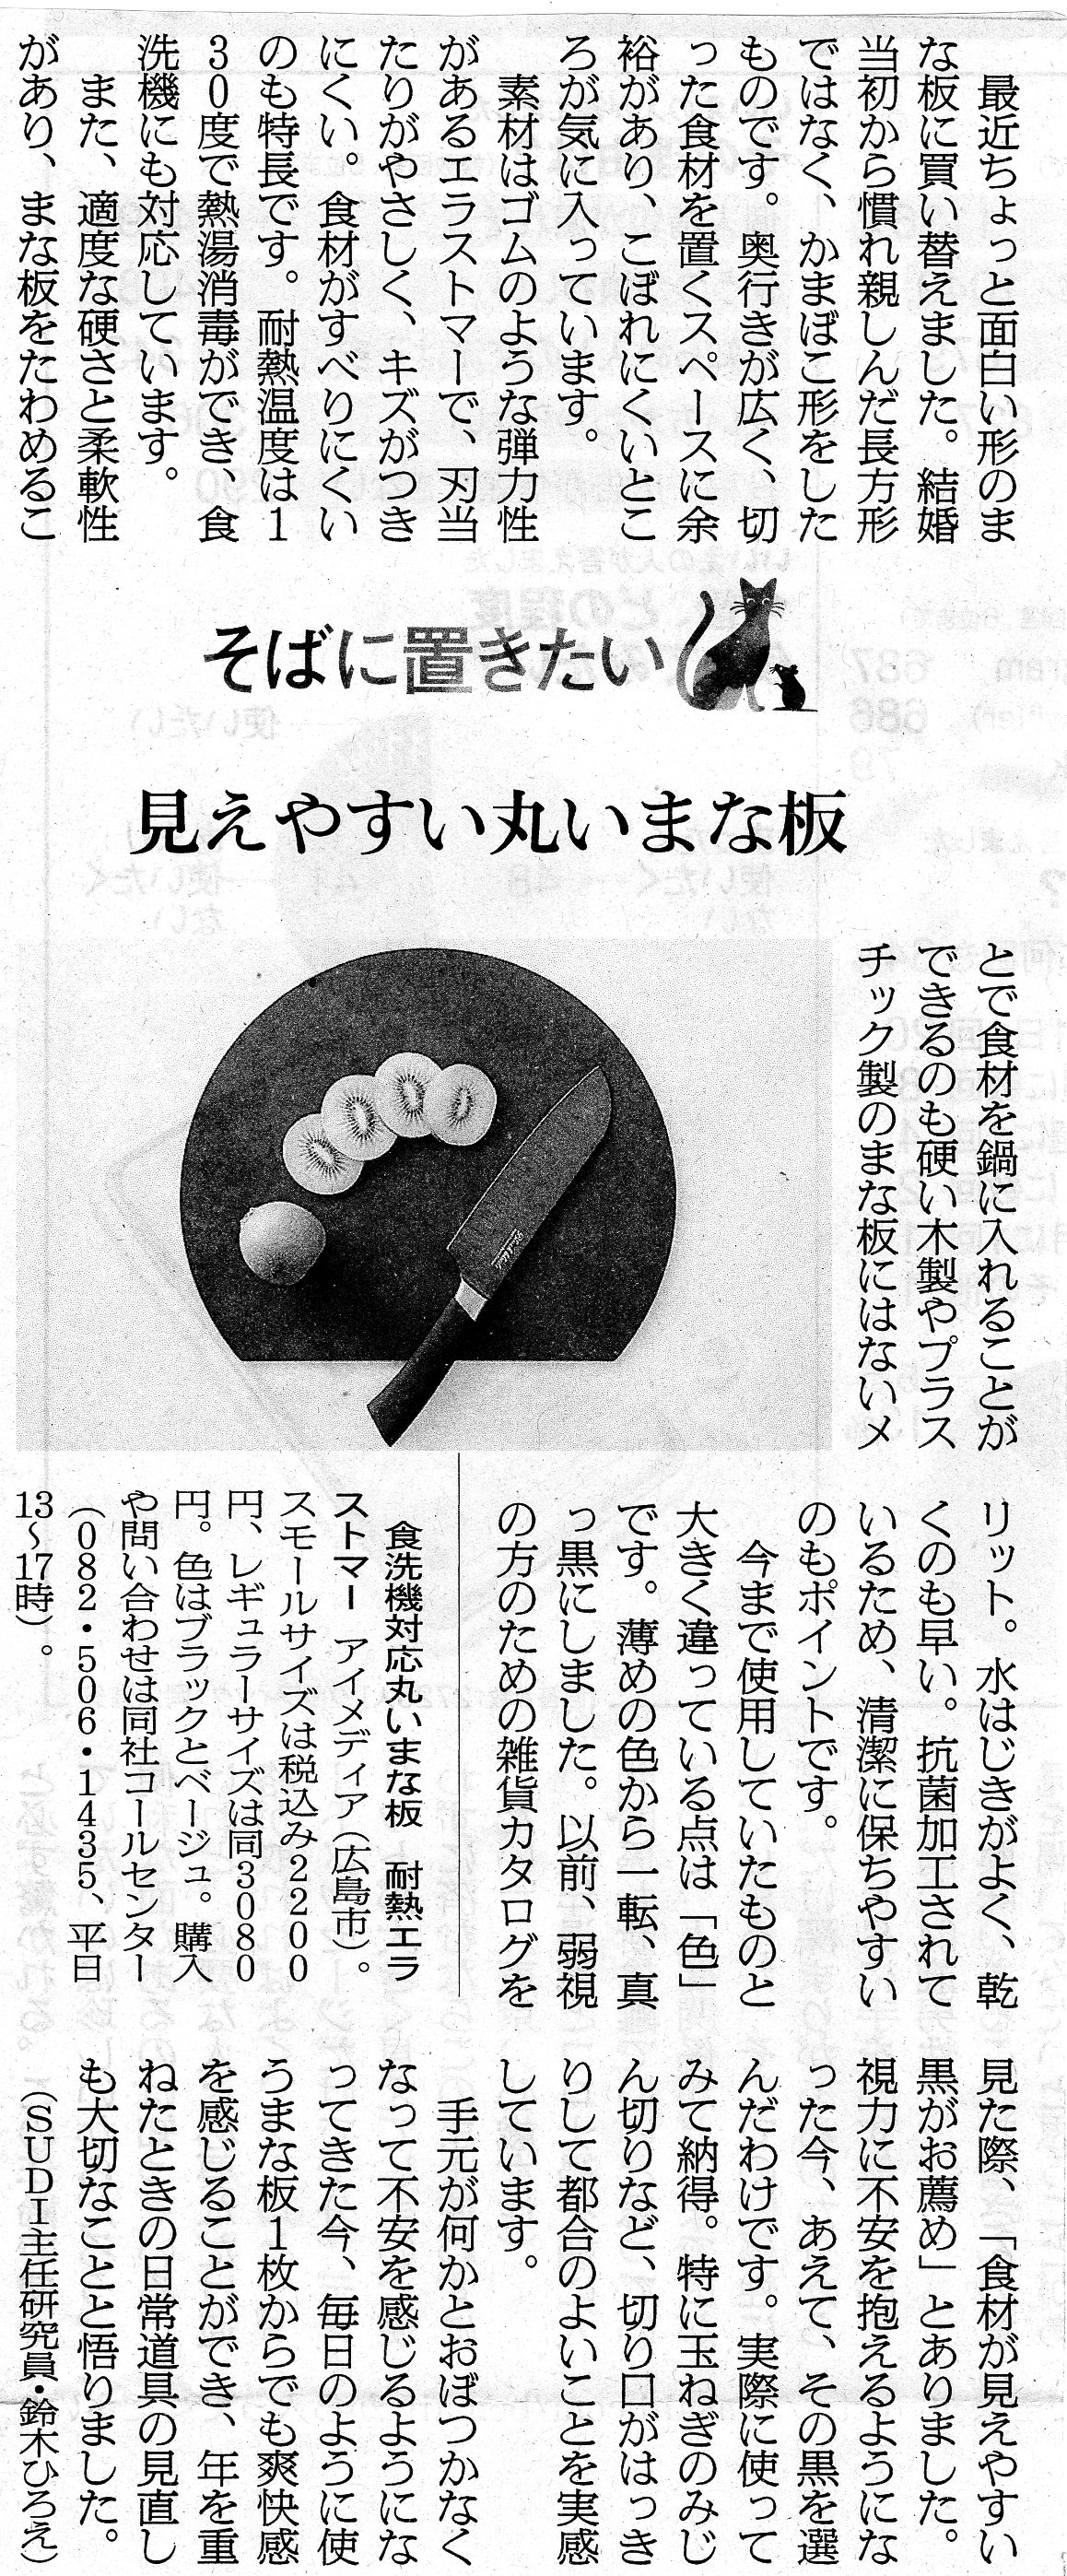 そばに置きたい
見えやすい丸いまな板
最近ちょっと面白い形のま
な板に買い替えました。結婚
当初から慣れ親しんだ長方形
ではなく、かまぼこ形をした
ものです。奥行きが広く、切
った食材を置くスペースに余
裕があり、こぼれにくいとこ
ろが気に入っています。
素材はゴムのような弾力性
があるエラストマーで、刃当
たりがやさしく、キズがつき
にくい。食材がすべりにくい
のも特長です。耐熱温度は1
30度で熱湯消毒ができ、食
洗機にも対応しています。
また、適度な硬さと柔軟性
があり、まな板をたわめるこ
とで食材を鍋に入れることが
できるのも硬い木製やプラス
チック製のまな板にはないメ
リット。水はじきがよく、乾
くのも早い。抗菌加工されて
いるため、清潔に保ちやすい
のもポイントです。
今まで使用していたものと
大きく違っている点は「色」
です。薄めの色から一転、真
っ黒にしました。以前、弱視
の方のための雑貨カタログを
見た際、「食材が見えやすい
黒がお薦め」とありました。
視力に不安を抱えるようにな
った今、あえて、その黒を選
んだわけです。実際に使って
みて納得。特に玉ねぎのみじ
ん切りなど、切り口がはっき
りして都合のよいことを実感
しています。
手元が何かとおぼつかなく
なって不安を感じるようにな
ってきた今、毎日のように使
うまな板1枚からでも爽快感
を感じることができ、年を重
ねたときの日常道具の見直し
も大切なことと悟りました。
（SUDI主任研究員・鈴木ひろえ）
食洗機対応丸いまな板　耐熱エラ
ストマー　アイメディア（広島市）。
スモールサイズは税込み2200
円、レギュラーサイズは同3080
円。色はブラックとベージュ。購入
や問い合わせは同社コールセンター
（082・506・1435、平日
13〜17時）。